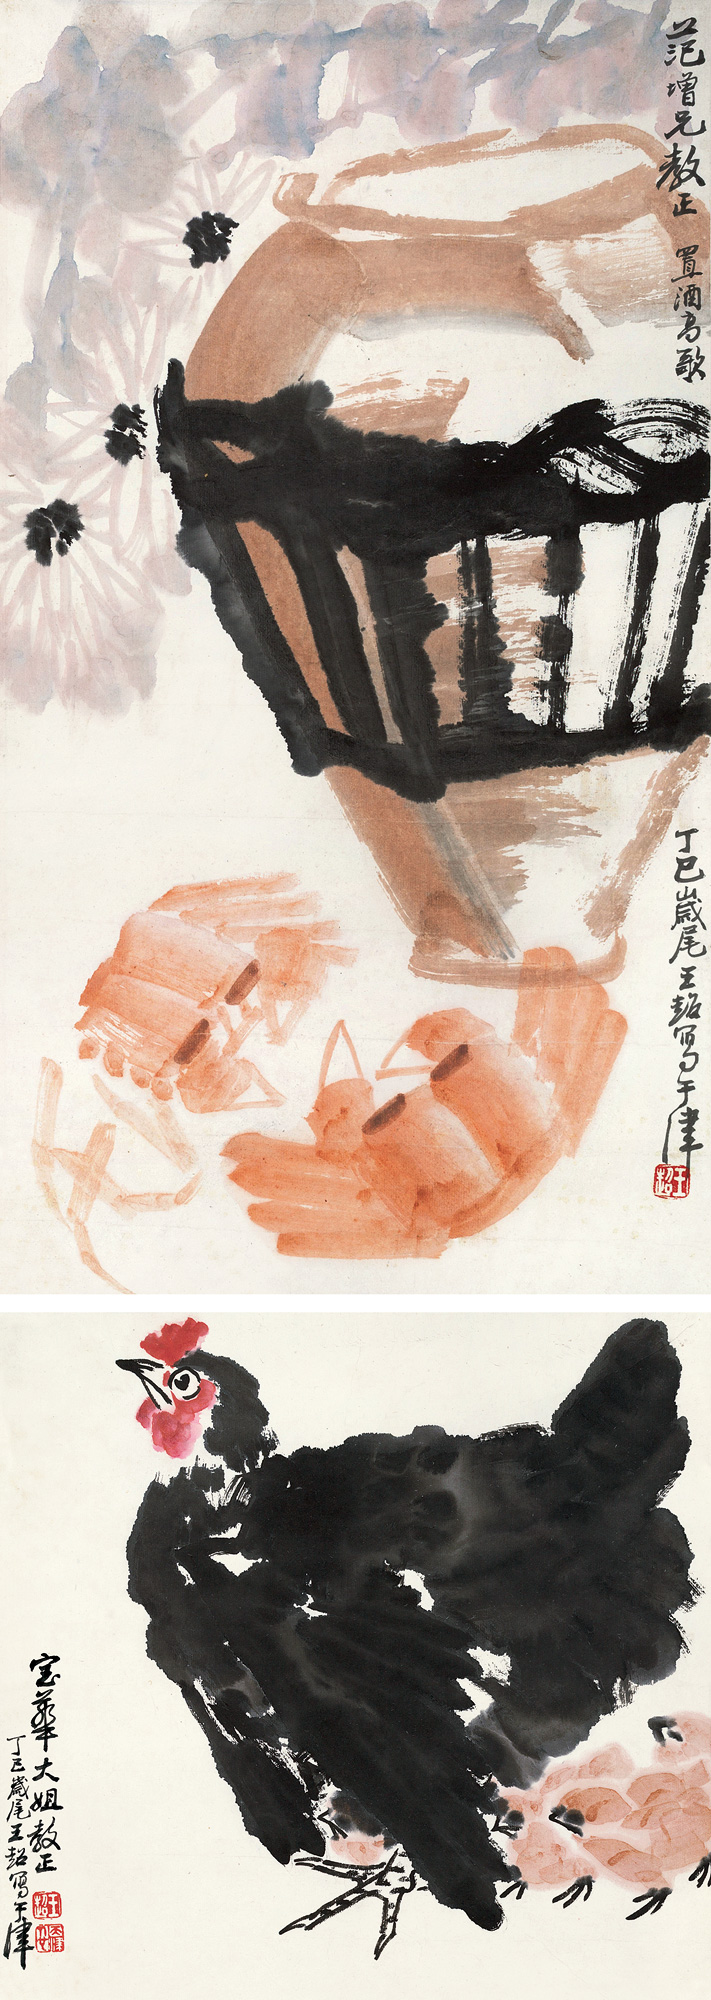 范增兄教正 置酒高歌
丁巳歲尾王超写于津
王超
宝華大姐教正
丁巳歲尾王超写于津
王超